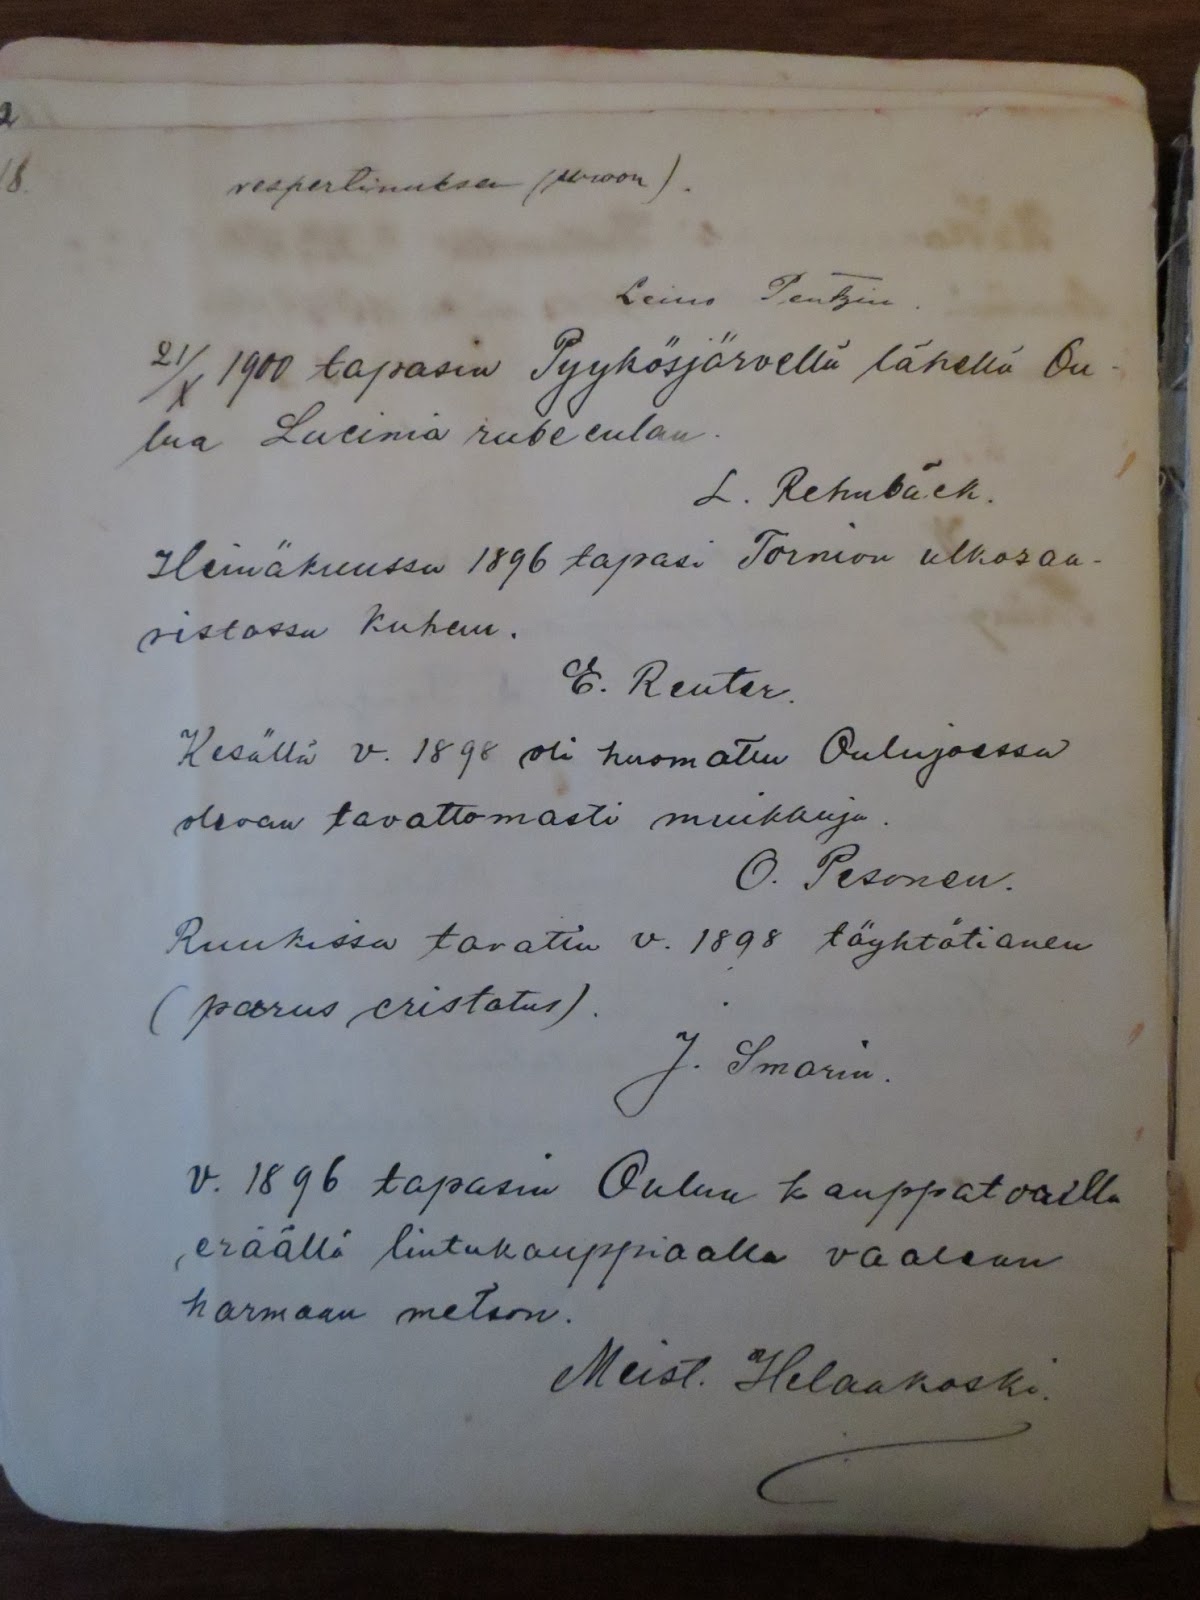 2
18.
vespertinuksen
Leino Pentzin.
21/X 1900 tapasin Pyykösjärvellä lähellä Ou-
lua Lucinia rubeculan.
L. Rehnbäck.
Heinäkuussa 1896 tapasi Tornion ulkosaa-
ristossa
E. Reuter.
Kesällä v. 1898 oli huomattu Oulujoessa
olevan tavattomasti muikkuja.
O. Pesonen.
Ruukissa tavattu v. 1898 töyhtötianen
(parus cristatus).
J. Smarin.
v. 1896 tapasin Oulun kauppatorilla
eräällä lintukauppiaalla vaalean
harmaan metson.
Meist. Helaakoski.